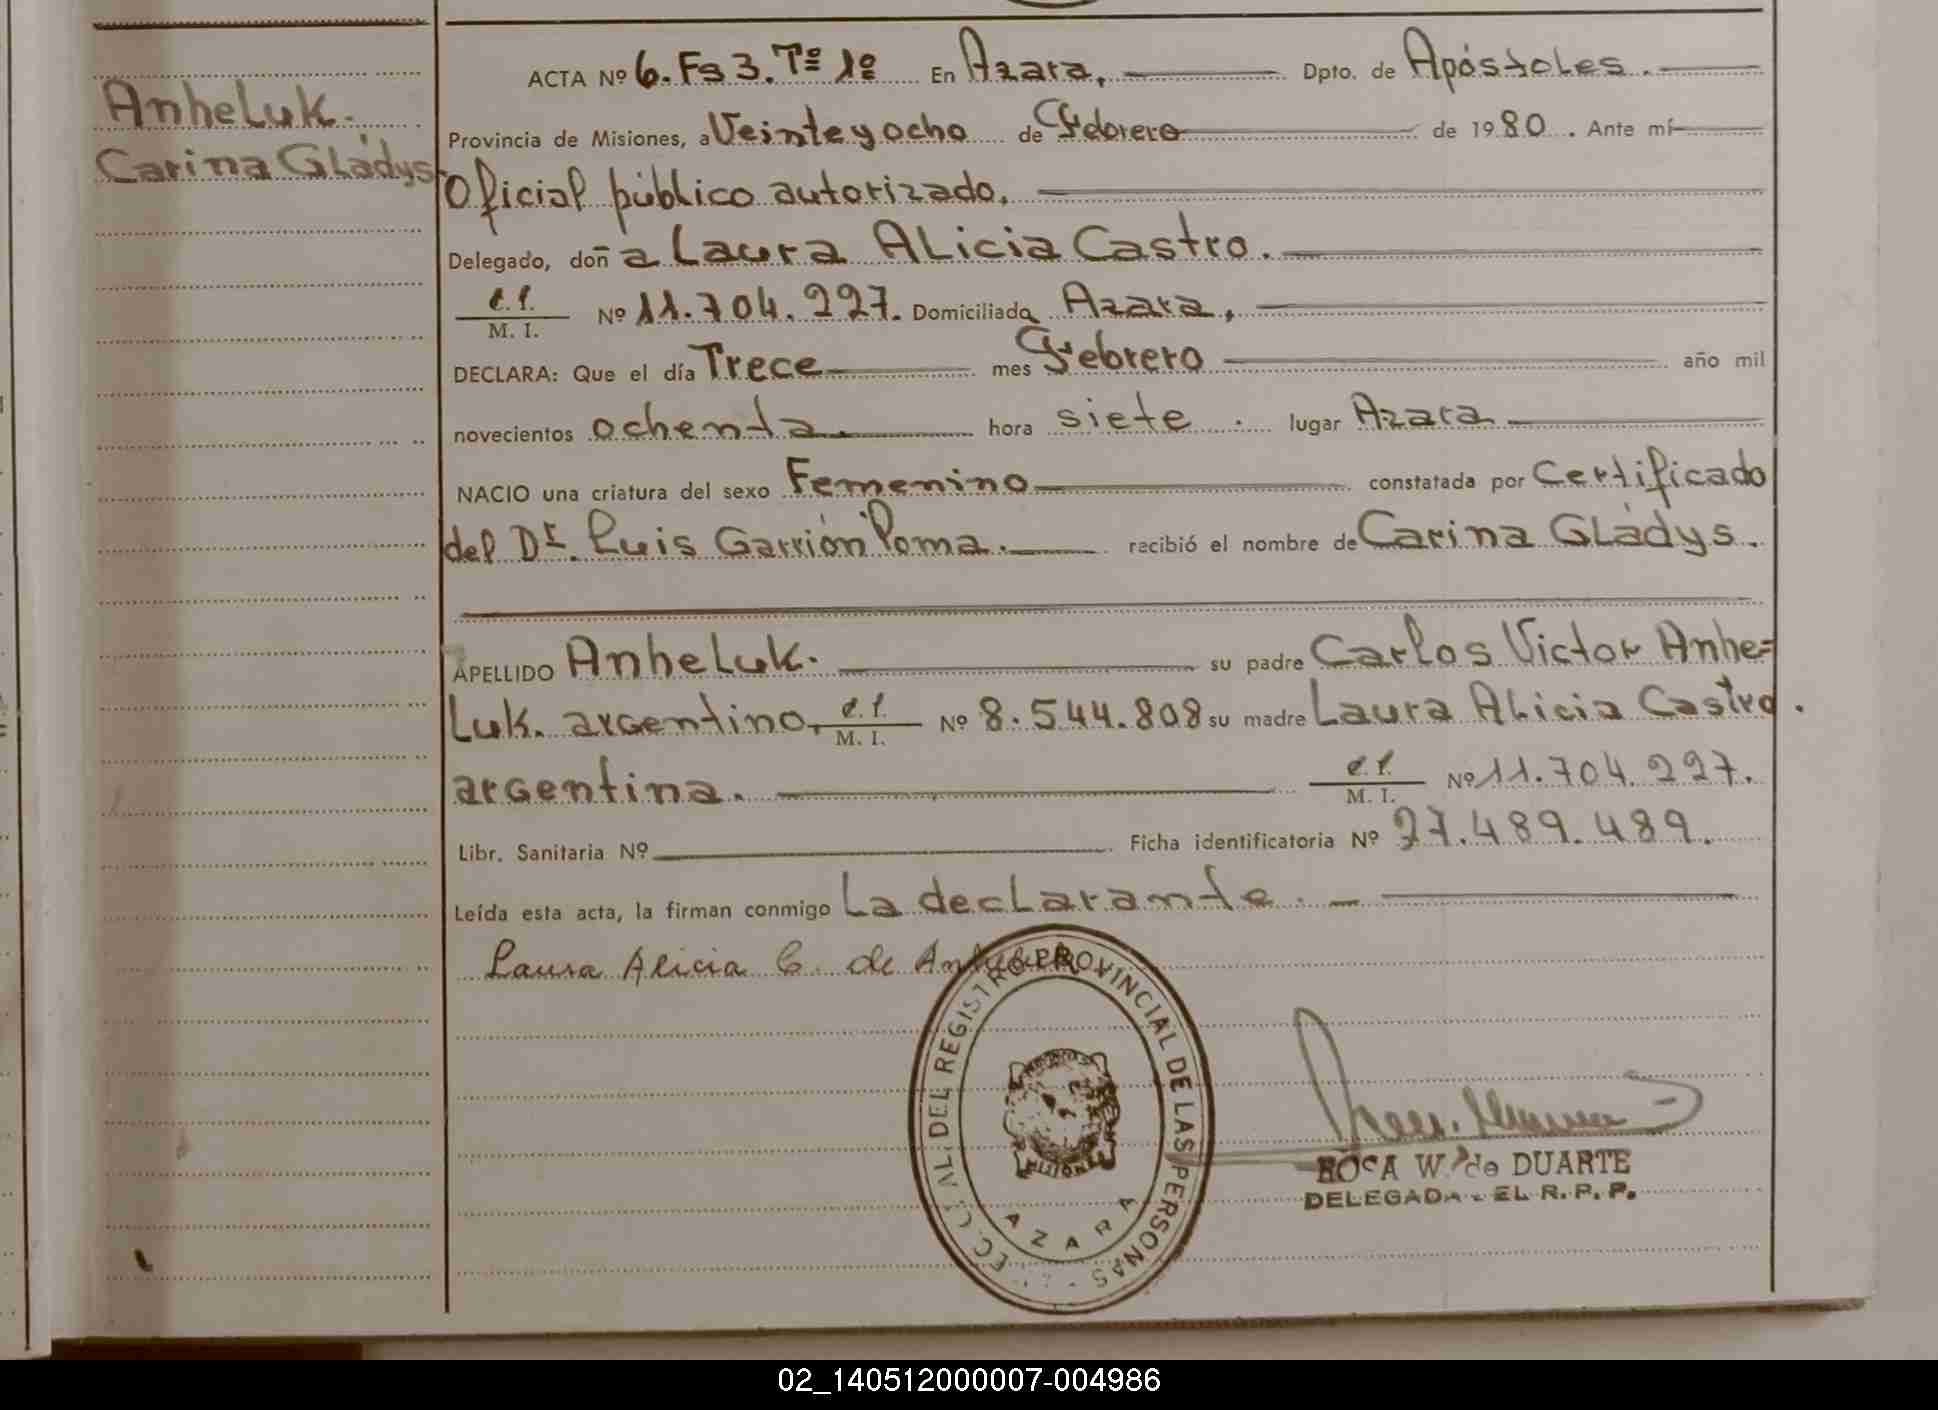 Anheluk.
Carina Gládys
ACTA Nº 6. Fs 3. Tº 1º En Azara, Dpto. de Apóstoles.
Provincia de Misiones, a Veinte y ocho de Febrero de 1980. Ante mí
Oficial público autorizado,
Delegado, doñ a Laura Alicia Castro.
C.I. / M. I. Nº 11.704.227. Domiciliada Azara,
DECLARA: Que el día Trece mes Febrero año mil
novecientos ochenta. hora siete. lugar Azara
NACIO una criatura del sexo Femenino constatada por Certificado
del Dr. Luis Garrión Poma. recibió el nombre de Carina Gládys.
APELLIDO Anheluk. su padre Carlos Victor Anhe=
luk. argentino, C.I. / M. I. Nº 8.544.808 su madre Laura Alicia Castro.
argentina. C.I. / M. I. Nº 11.704.227.
Libr. Sanitaria Nº Ficha identificatoria Nº 27.489.489.
Leída esta acta, la firman conmigo La declarante. -
Laura Alicia C. de Anheluk
DEL REGISTRO PROVINCIAL DE LAS PERSONAS
MISIONES
AZARA
ROSA W. de DUARTE
DELEGADA EL R. P. P.
02_140512000007-004986